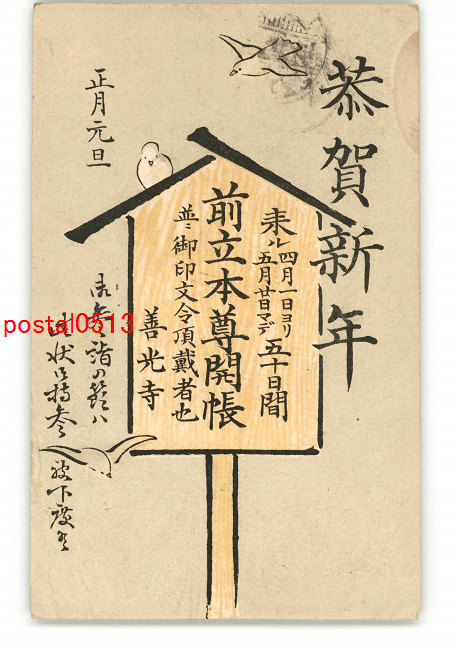 恭賀新年
来ル四月一日ヨリ五月廿日マデ五十日間
前立本尊開帳
並ニ御印文令頂戴者也
善光寺
正月元旦
御参詣の節ハ
此状御持参
被下度候
postal0513